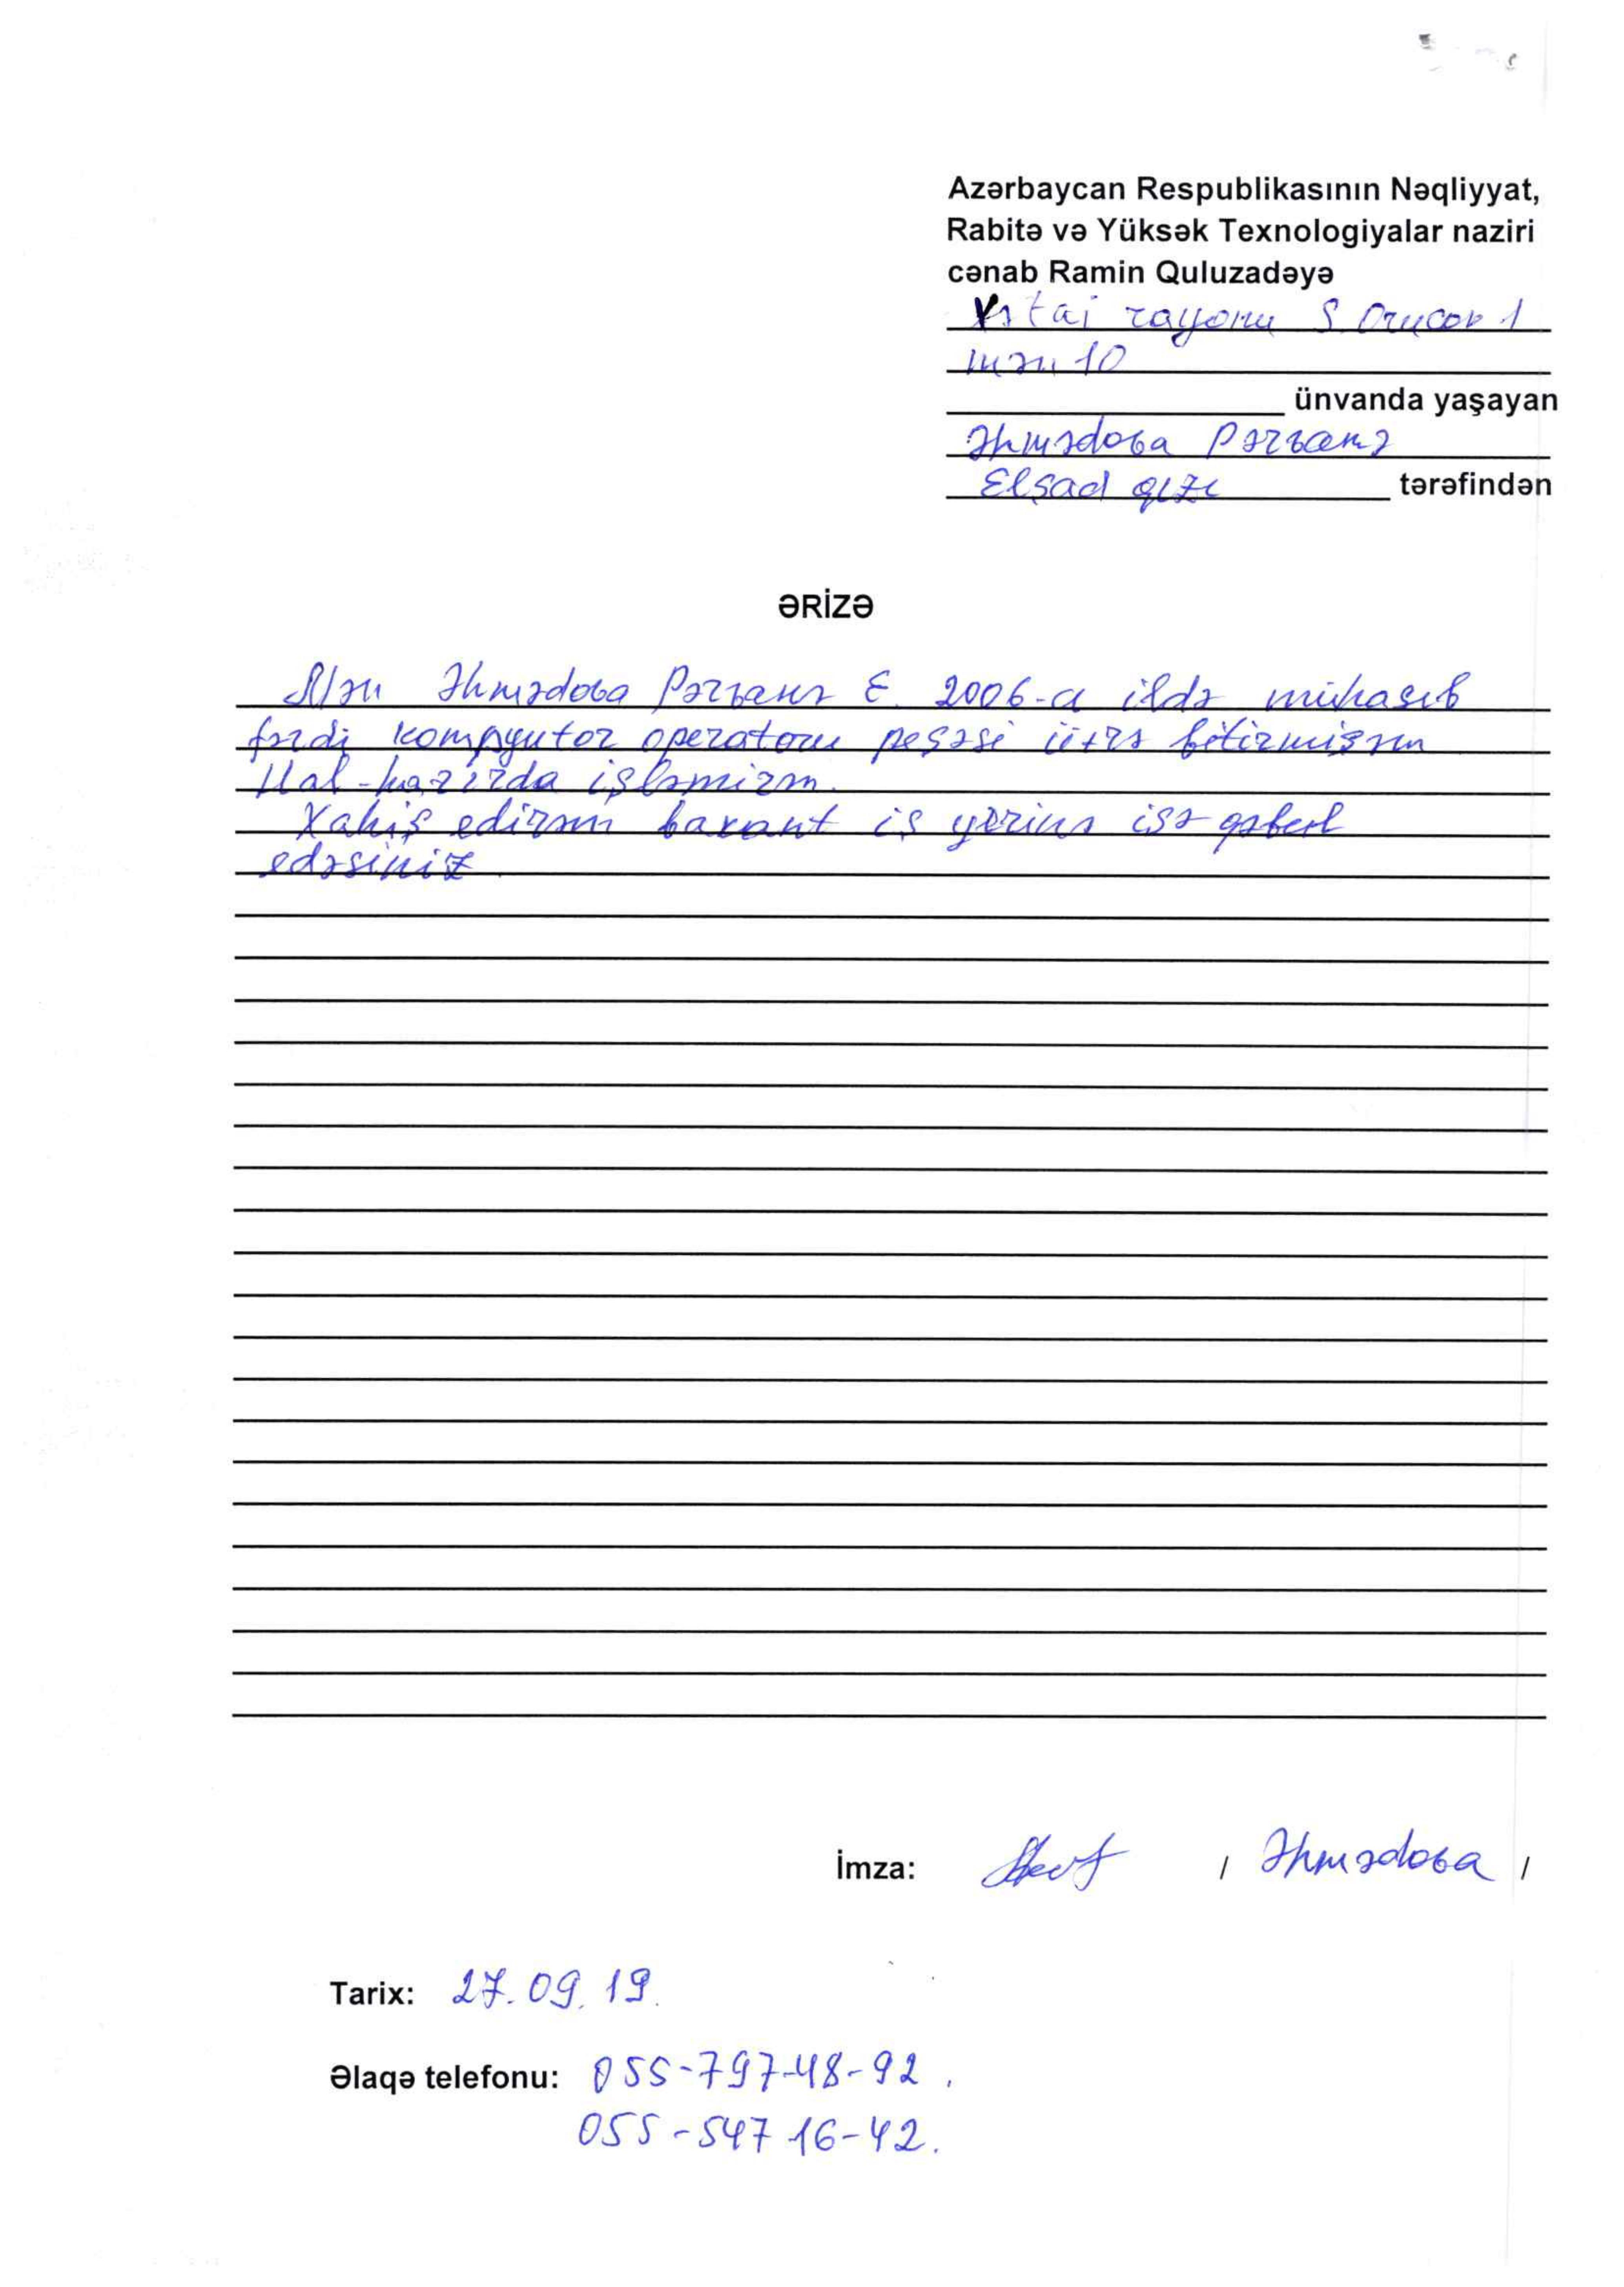 Azərbaycan Respublikasının Nəqliyyat,
Rabitə və Yüksək Texnologiyalar naziri
cənab Ramin Quluzadəyə
Xətai rayonu S Orucov 1
mən 10
ünvanda yaşayan
Əhmədova Pərvanə
Elşad qızı tərəfindən
ƏRİZƏ
Mən Əhmədova Pərvanə E. 2006-cı ildə mühasib
fərdi kompyutor operatoru peşəsi üzrə bitirmişəm
Hal-hazırda işləmirəm.
Xahiş edirəm vakant iş yerinə işə qəbul
edəsiniz
İmza: / Əhmədova /
Tarix: 27.09.19.
Əlaqə telefonu: 055-797-48-92.
055-547 16-42.